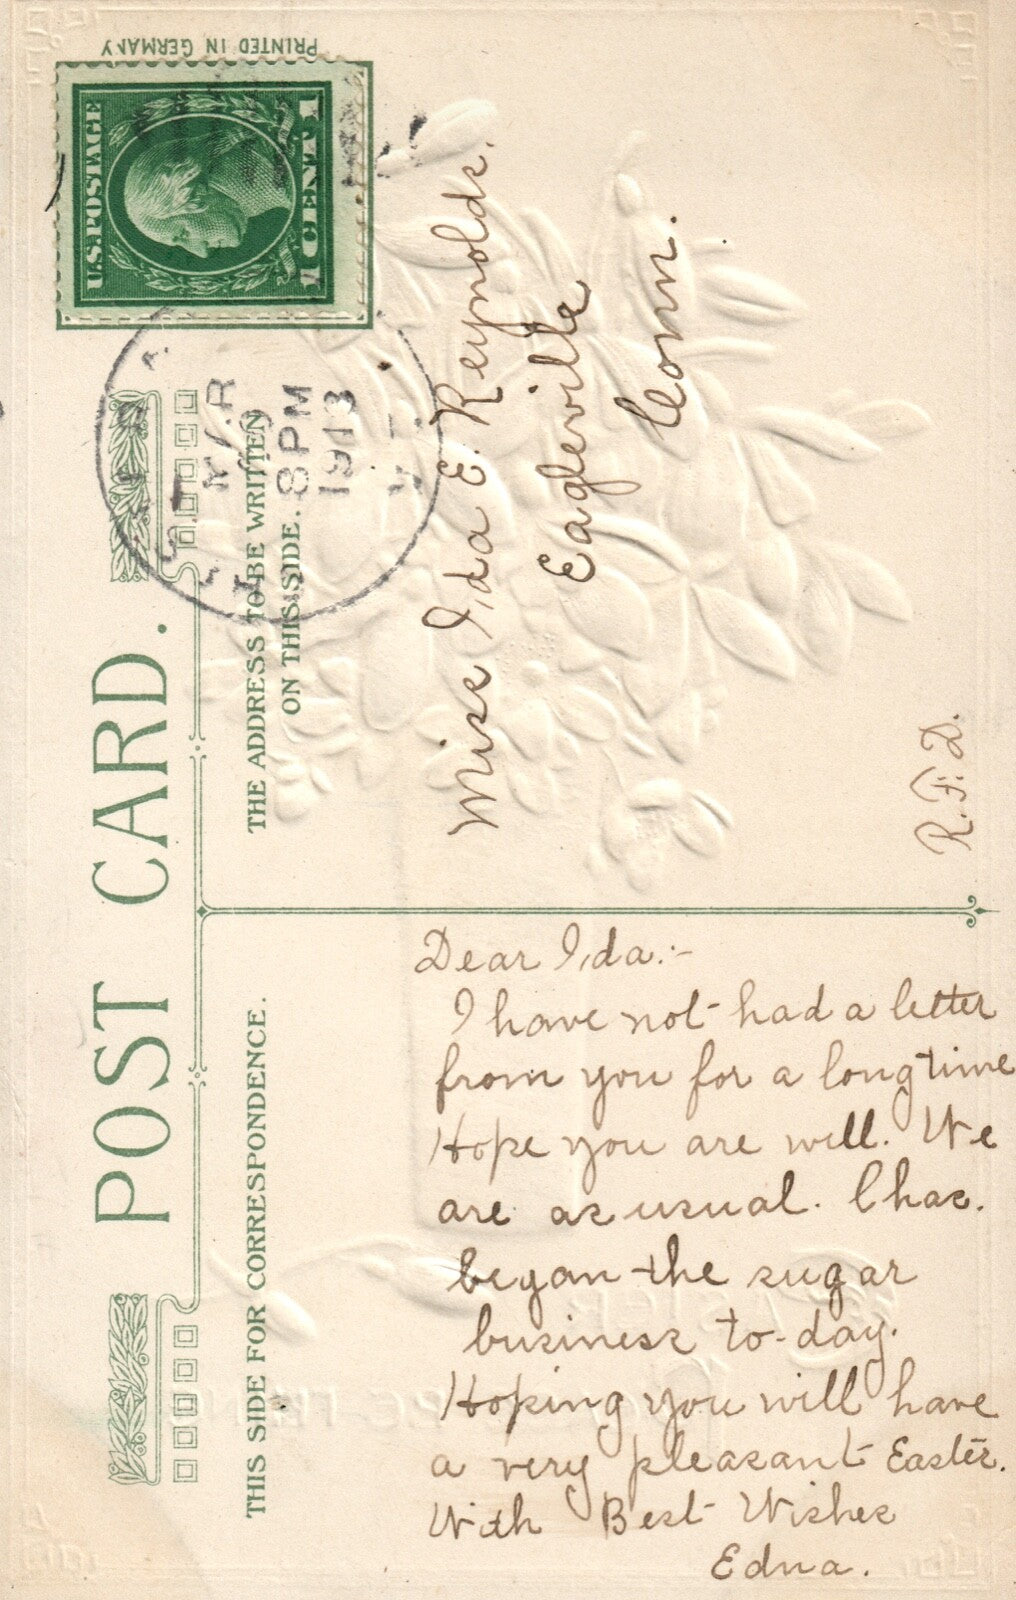 PRINTED IN GERMANY
U.S. POSTAGE
1 CENT 1
MAR
8 PM
1913
POST CARD.
THE ADDRESS TO BE WRITTEN
ON THIS SIDE.
THIS SIDE FOR CORRESPONDENCE.
Miss Ida E. Reynolds.
Eagleville
Conn.
R.F.D.
Dear Ida:-
I have not had a letter
from you for a long time
Hope you are well. We
are as usual. Chas.
began the sugar
business to-day.
Hoping you will have
a very pleasant Easter.
With Best Wishes
Edna.